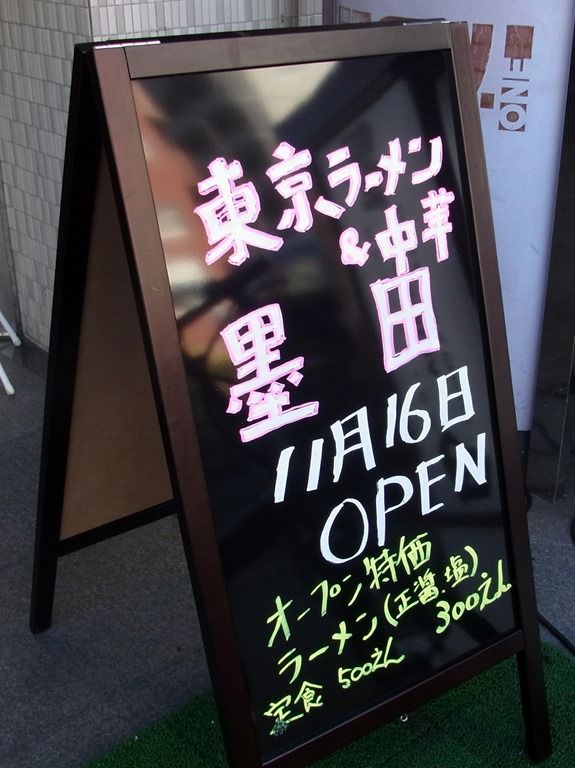 東京ラーメン
&中華
墨田
11月16日
OPEN
オープン特価
ラーメン(正醤.塩)
300えん
定食 500えん
EINO